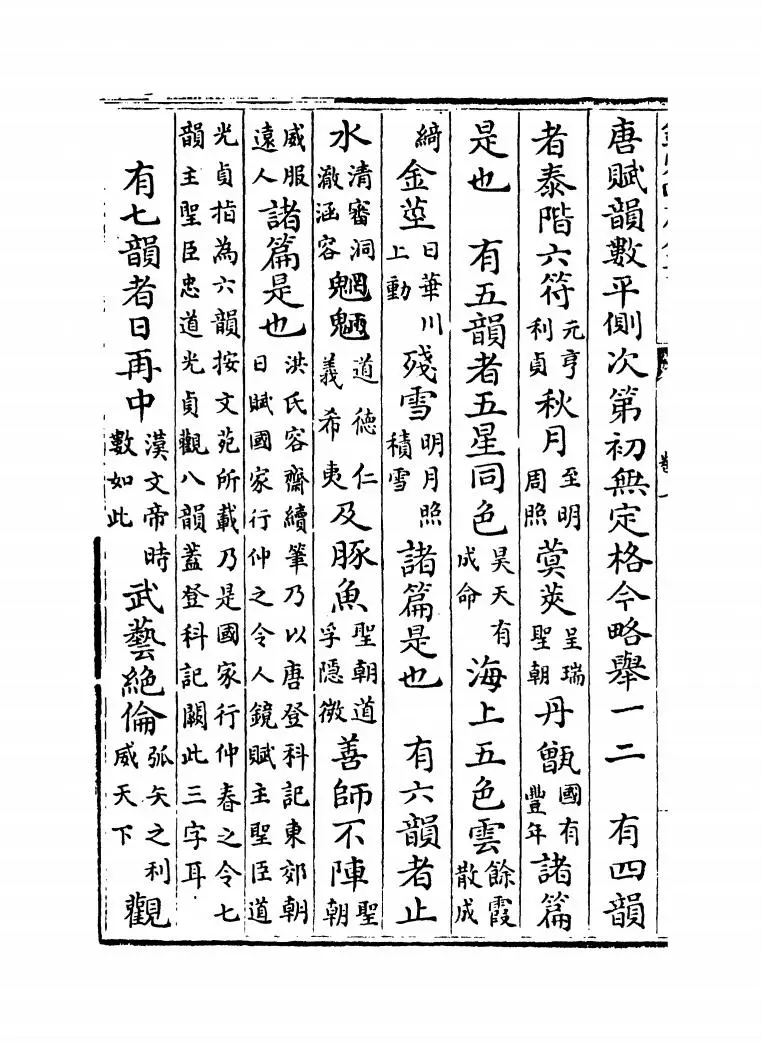 唐賦韻數平側次第初無定格今略舉一二　有四韻
者泰階六符元亨利貞秋月至明周照蓂莢呈瑞聖朝丹甑國有豐年諸篇
是也　有五韻者五星同色昊天有成命海上五色雲餘霞散成
綺金莖日華川上動殘雪明月照積雪諸篇是也　有六韻者止
水清審洞澈涵容魍魎道德仁義希夷及豚魚聖朝道孚隱微善師不陣聖朝
威服遠人諸篇是也洪氏容齋續筆乃以唐登科記東郊朝日賦國家行仲之令人鏡賦主聖臣道
光貞指為六韻按文苑所載乃是國家行仲春之令七
韻主聖臣忠道光貞觀八韻蓋登科記闕此三字耳
有七韻者日再中漢文帝時數如此武藝絶倫弧矢之利威天下觀